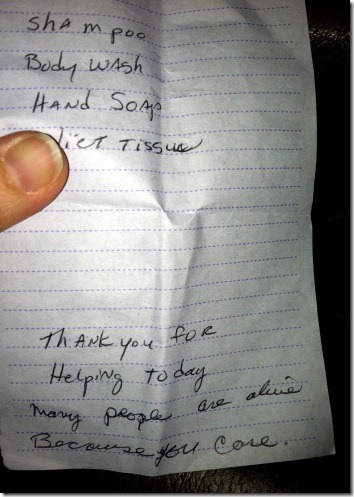 Shampoo
Body Wash
Hand Soap
Tissue
Thank you for
Helping today
many people are alive
Because you care.